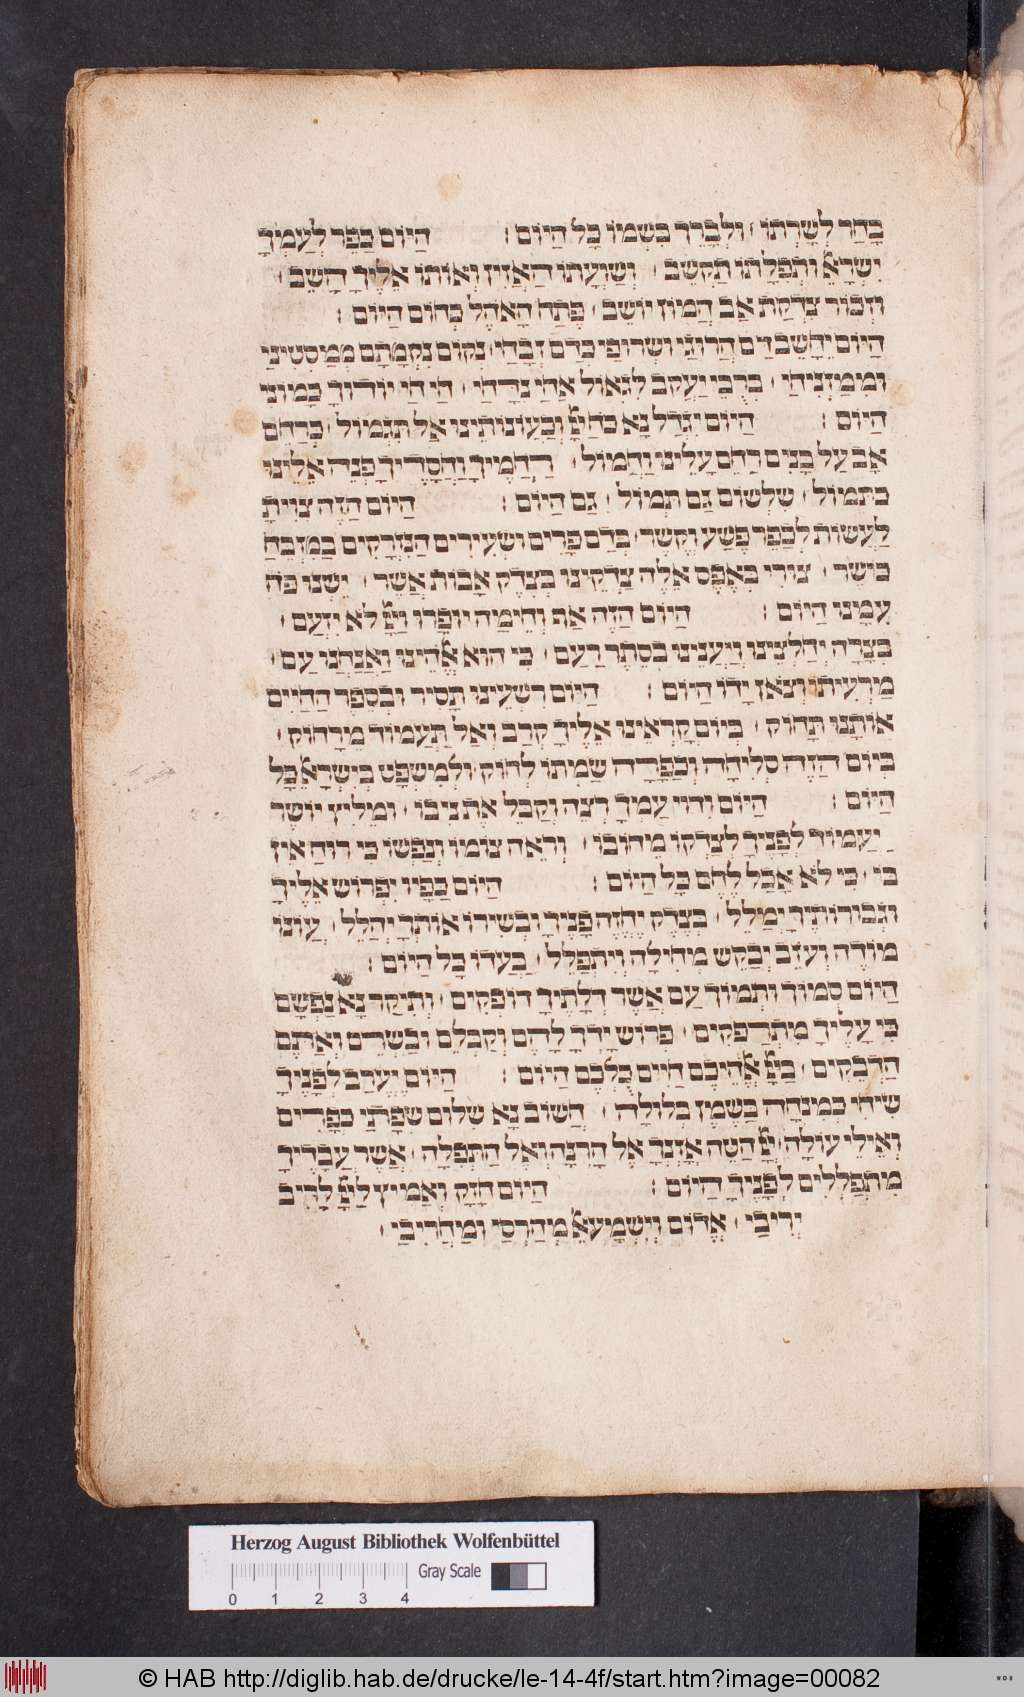 בָּחַר לְשָׁרְתוֹ ׳ וּלְבָרֵךְ בִּשְׁמוֹ כָּל הַיּוֹם : הַיּוֹם כַּפֵּר לְעַמְּךָ
יִשְׂרָאֵל וּתְפִלָּתוֹ תַּקְשֵׁב ׳ וְשַׁוְעָתוֹ הַאֲזִין וְאוֹתוֹ אֵלֶיךָ הָשֵׁב ׳
וּזְכוֹר צִדְקַת אַב הֲמוֹן יוֹשֵׁב ׳ פֶּתַח הָאֹהֶל כְּחוֹם הַיּוֹם :
הַיּוֹם יֵחָשֵׁב דַּם הֲרוּגַי וּשְׂרוּפַי כְּדַם זְבָחַי ׳ נְקוֹם נִקְמָתָם מִמַּסְטִינַי
וּמִמַּזְנִיחַי ׳ בִּרְבִי יַעֲקֹב לִגְאוֹל אַחַי נִדָּחַי ׳ חַי חַי יוֹדוּךָ כָּמוֹנִי
הַיּוֹם : הַיּוֹם יִגְדַּל נָא כֹּחַ וּבַעֲוֹנוֹתֵינוּ אַל תִּגְמוֹל ׳ כְּרַחֵם
אָב עַל בָּנִים רַחֵם עָלֵינוּ וַחֲמוֹל ׳ רַחֲמֶיךָ וַחֲסָדֶיךָ פְּנֵה אֵלֵינוּ
כִּתְמוֹל ׳ שִׁלְשׁוֹם גַּם תְּמוֹל ׳ גַּם הַיּוֹם : הַיּוֹם הַזֶּה צִוִּיתָ
לַעֲשׂוֹת לְכַפֵּר פֶּשַׁע וָקֶשֶׁר ׳ בְּדַם פָּרִים וּשְׂעִירִים הַנִּזְרָקִים בַּמִּזְבֵּחַ
בְּיֹשֶׁר ׳ צוּרִי בְּאֶפֶס אֵלֶּה צַדְּקֵינוּ בְּצֶדֶק אָבוֹת אֲשֶׁר ׳ יֶשְׁנוֹ פֹּה
עִמָּנוּ הַיּוֹם : הַיּוֹם הַזֶּה אַף וְחֵימָה יוּפָרוּ לֹא יִזְעַם ׳
בַּצָּרָה יְחַלְּצֵינוּ וְיַעֲנֵינוּ בְּסֵתֶר רַעַם ׳ כִּי הוּא אֱלֹהֵינוּ וַאֲנַחְנוּ עַם ׳
מַרְעִיתוֹ וְצֹאן יָדוֹ הַיּוֹם : הַיּוֹם רִשְׁעֵינוּ תָּסִיר וּבְסֵפֶר הַחַיִּים
אוֹתָנוּ תָּחוֹק ׳ בְּיוֹם קָרְאֵינוּ אֵלֶיךָ קְרַב וְאַל תַּעֲמוֹד מֵרָחוֹק ׳
בְּיוֹם הַזֶּה סְלִיחָה וְכַפָּרָה שַׂמְתּוֹ לְחוֹק וּלְמִשְׁפָּט בְּיִשְׂרָאֵל כָּל
הַיּוֹם : הַיּוֹם וִדּוּי עַמְּךָ רְצֵה וְקַבֵּל אֶת נִיבוֹ ׳ וּמֵלִיץ יוֹשֶׁר
יַעֲמוֹד לְפָנֶיךָ לְצַדְּקוֹ מֵחוֹבוֹ ׳ וּרְאֵה צוֹמוֹ וְנַפְשׁוֹ כִּי רוּחַ אֵין
בּוֹ ׳ כִּי לֹא אָכַל לֶחֶם כָּל הַיּוֹם : הַיּוֹם כַּפָּיו יִפְרוֹשׂ אֵלֶיךָ
וּגְבוּרוֹתֶיךָ יְמַלֵּל ׳ בְּצֶדֶק יֶחֱזֶה פָּנֶיךָ וּבְשִׁירוֹ אוֹתְךָ יְהַלֵּל ׳ עֲוֹנוֹ
מוֹדֶה וְעֹזֵב יְבַקֵּשׁ מְחִילָה וְיִתְפַּלֵּל ׳ בַּעֲדוֹ כָּל הַיּוֹם :
הַיּוֹם סְמוֹךְ וּתְמוֹךְ עַם אֲשֶׁר דְּלָתֶיךָ דּוֹפְקִים ׳ וְתִיקַר נָא נַפְשָׁם
כִּי עָלֶיךָ מִתְרַפְּקִים ׳ פְּרוֹשׂ יָדְךָ לָהֶם וְקַבְּלֵם וּבַשְּׂרֵם וְאַתֶּם
הַדְּבֵקִים ׳ אֱלֹהֵיכֶם חַיִּים כֻּלְּכֶם הַיּוֹם : הַיּוֹם יֶעֱרַב לְפָנֶיךָ
שִׂיחִי כְּמִנְחָה בַשֶּׁמֶן בְּלוּלָה ׳ חֲשׁוֹב נָא שִׁלּוּם שְׂפָתַי כְּפָרִים
וְאֵילֵי עוֹלָה ׳ הַטֵּה אָזְנְךָ אֶל הָרִנָּה וְאֶל הַתְּפִלָּה ׳ אֲשֶׁר עֲבָדֶיךָ
מִתְפַּלְּלִים לְפָנֶיךָ הַיּוֹם : הַיּוֹם חֲזַק וֶאֱמִיץ לָרִיב
יְרִיבַי ׳ אֱדוֹם וְיִשְׁמָעֵאל מְהָרְסַי וּמַחֲרִיבַי ׳
Herzog August Bibliothek Wolfenbüttel
Gray Scale
0 1 2 3 4
© HAB http://diglib.hab.de/drucke/le-14-4f/start.htm?image=00082